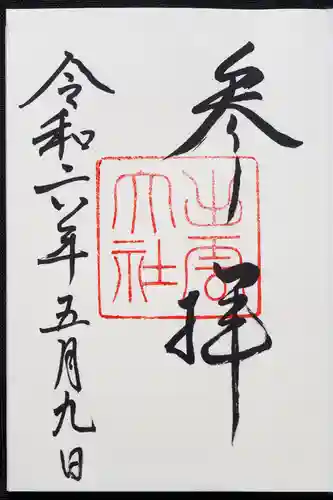 参拝
出雲
大社
令和六年五月九日